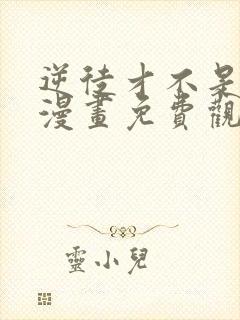 逆徒才不呆
漫畫免費觀
靈小兒